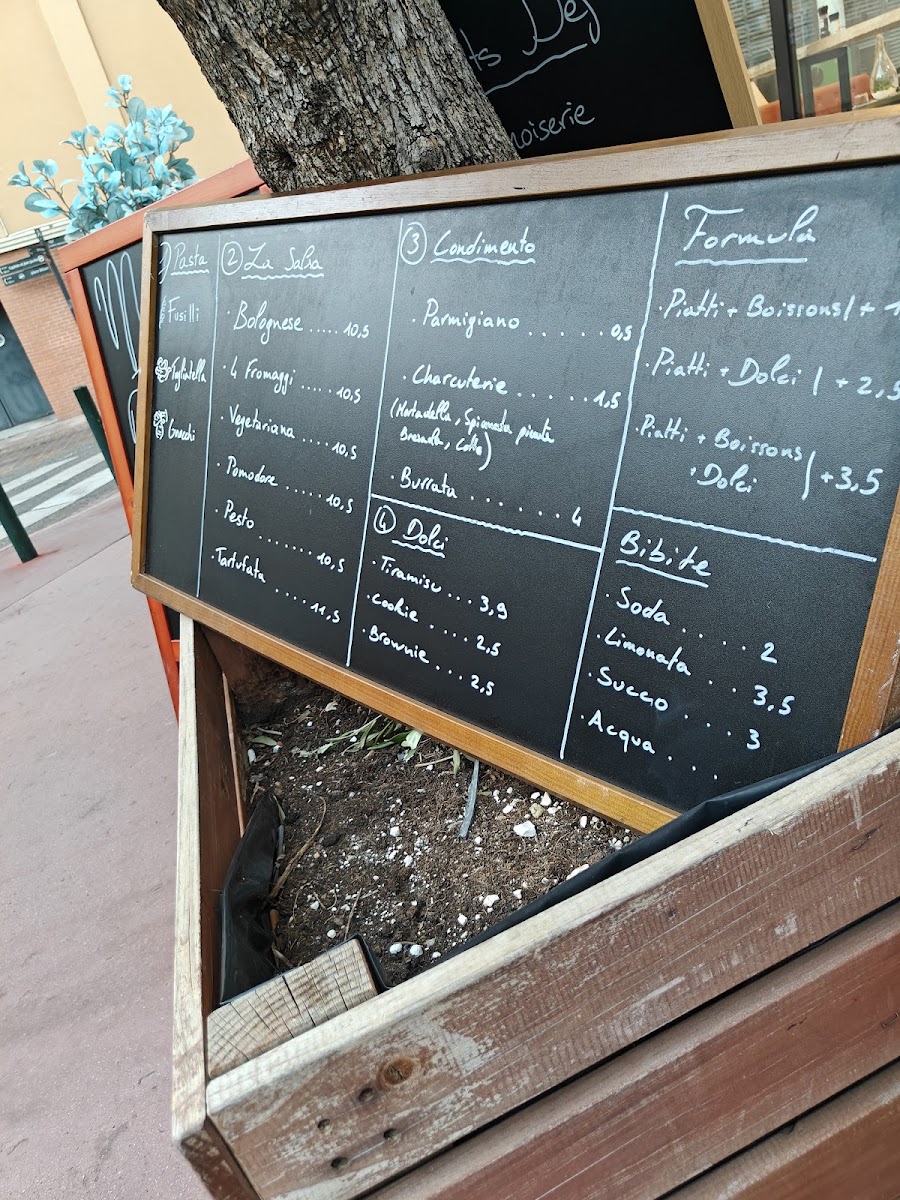 Def
noiserie
Pasta
Fusilli
Tagliatella
Gnocchi
② La Salsa
· Bolognese ..... 10,5
· 4 Fromaggi ..... 10,5
· Vegetariana .... 10,5
· Pomodore ...... 10,5
· Pesto ....... 10,5
· Tartufata .... 11,5
③ Condimento
· Parmigiano ...... 0,5
· Charcuterie ...... 1,5
(Mortadella, Spianata picante
Bresaola, Cotto)
· Burrata ...... 4
④ Dolci
· Tiramisu ... 3,9
· Cookie .... 2,5
· Brownie ... 2,5
Formula
· Piatti + Boissons / + 1
· Piatti + Dolci / + 2,5
· Piatti + Boissons
+ Dolci / + 3,5
Bibite
· Soda .... 2
· Limonata ... 3,5
· Succo .... 3
· Acqua ....